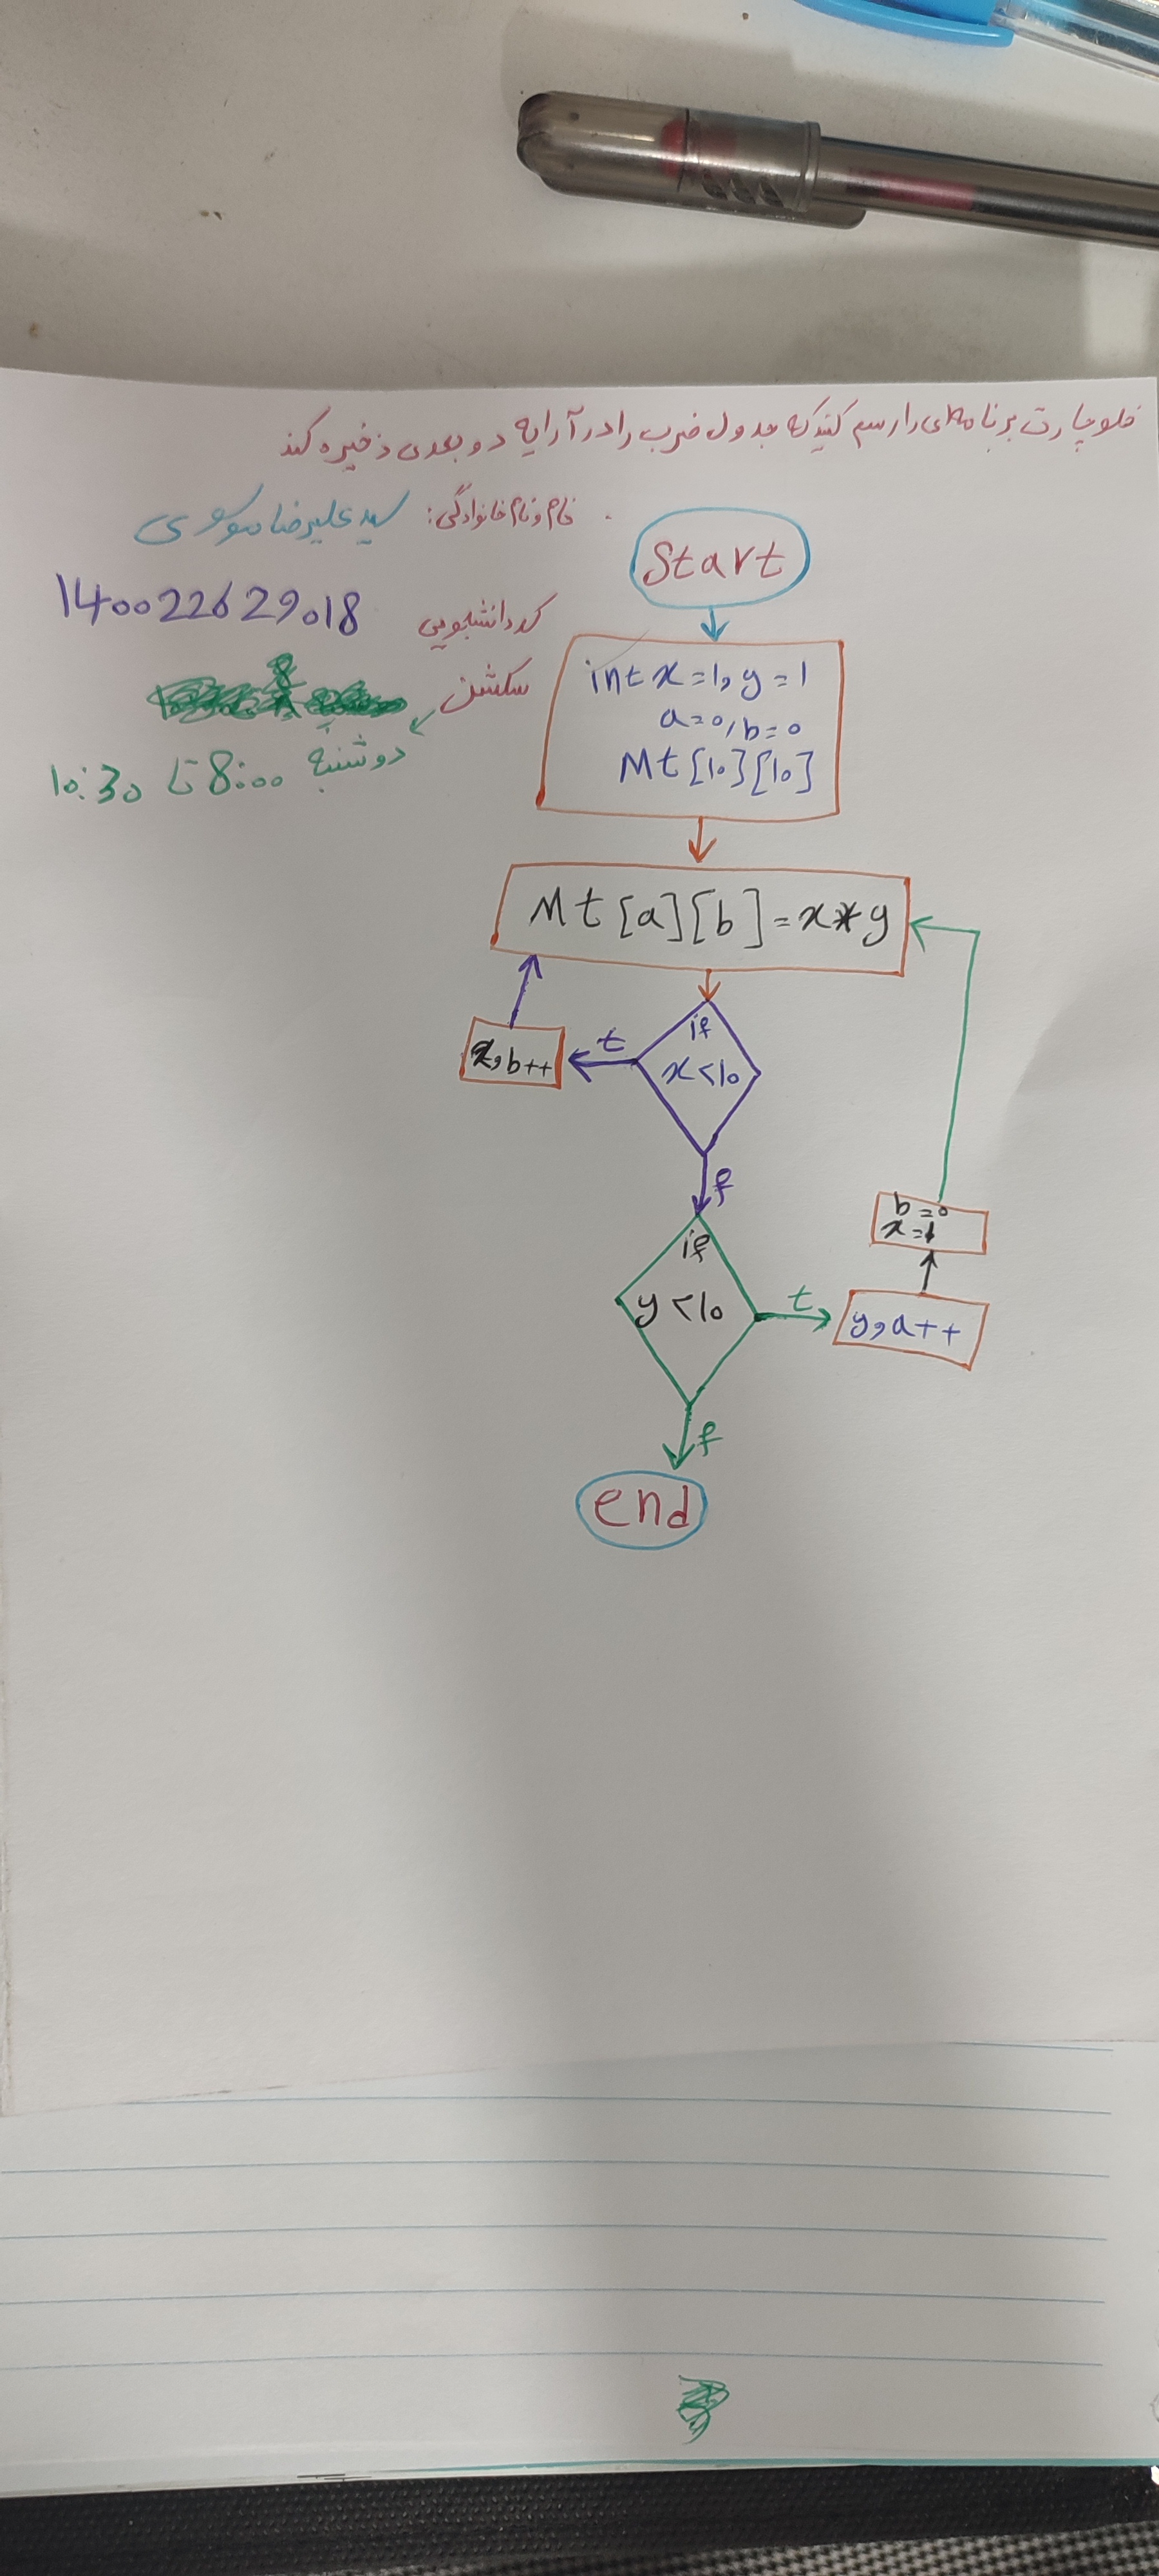 فلوچارت برنامه‌ای را رسم کنید که جدول ضرب را در آرایه دو بعدی ذخیره کند
نام و نام خانوادگی: سید علیرضا موسوی
کد دانشجویی 140022629018
سکشن
دوشنبه 8:00 تا 10:30
Start
int x=1, y=1
a=0, b=0
Mt[10][10]
Mt[a][b]=x*y
if
x<10
t
x,b++
f
if
y<10
t
y,a++
b=0
x=1
f
end